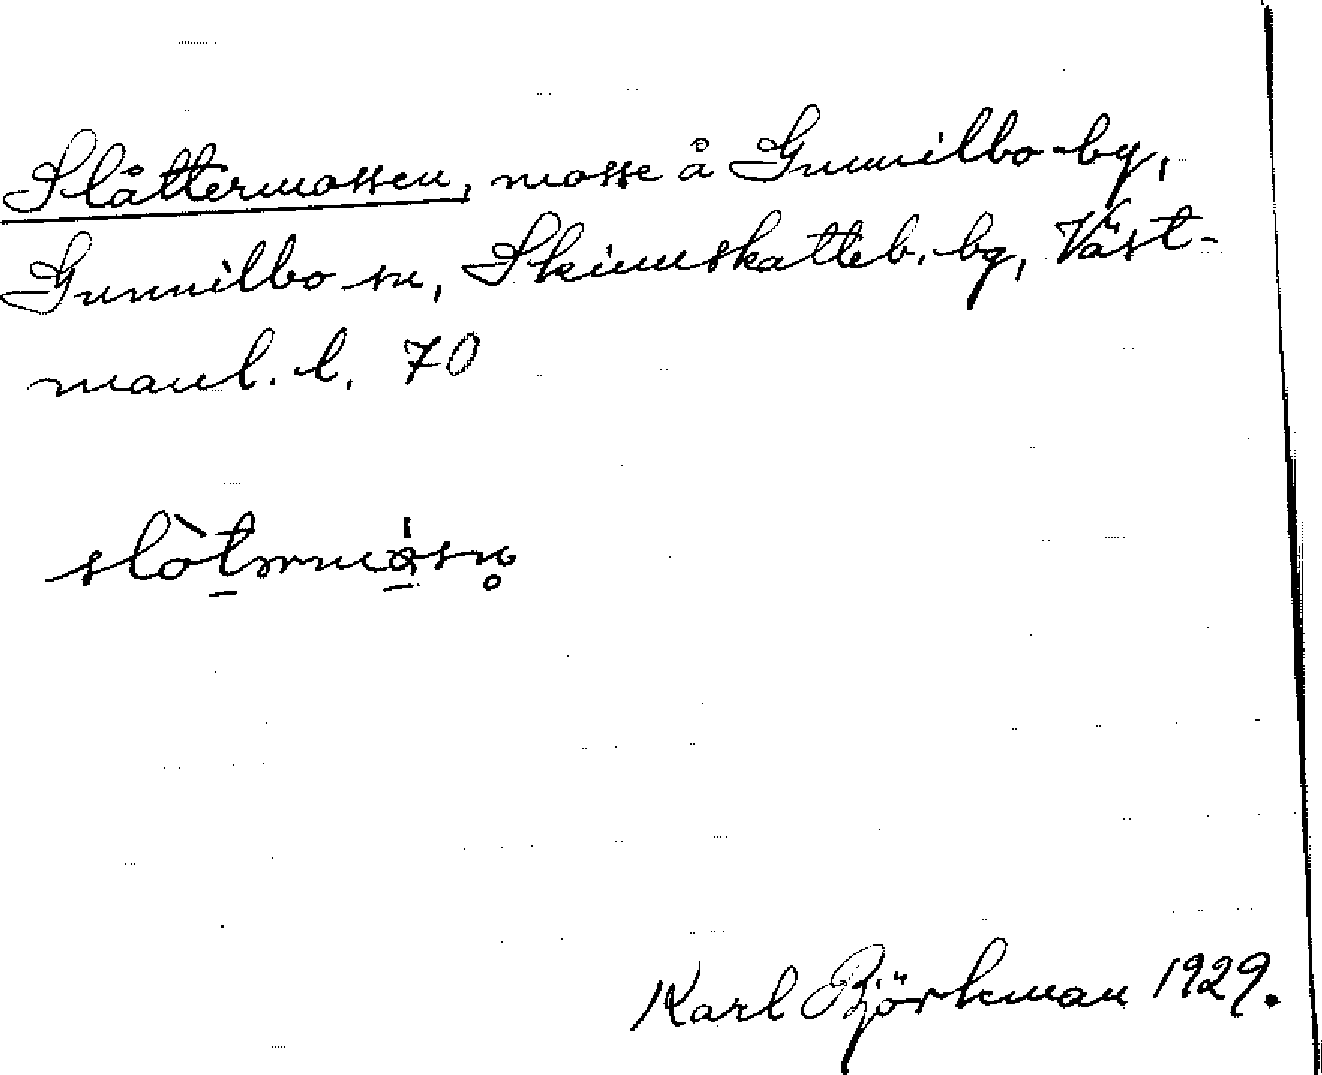 Slåttermossen, mosse å Gunnilbo by,
Gunnilbo sn, Skinnskatteb. bg, Väst-
manl. l. 70
slòtərmósn̥
Karl Björkman 1929.